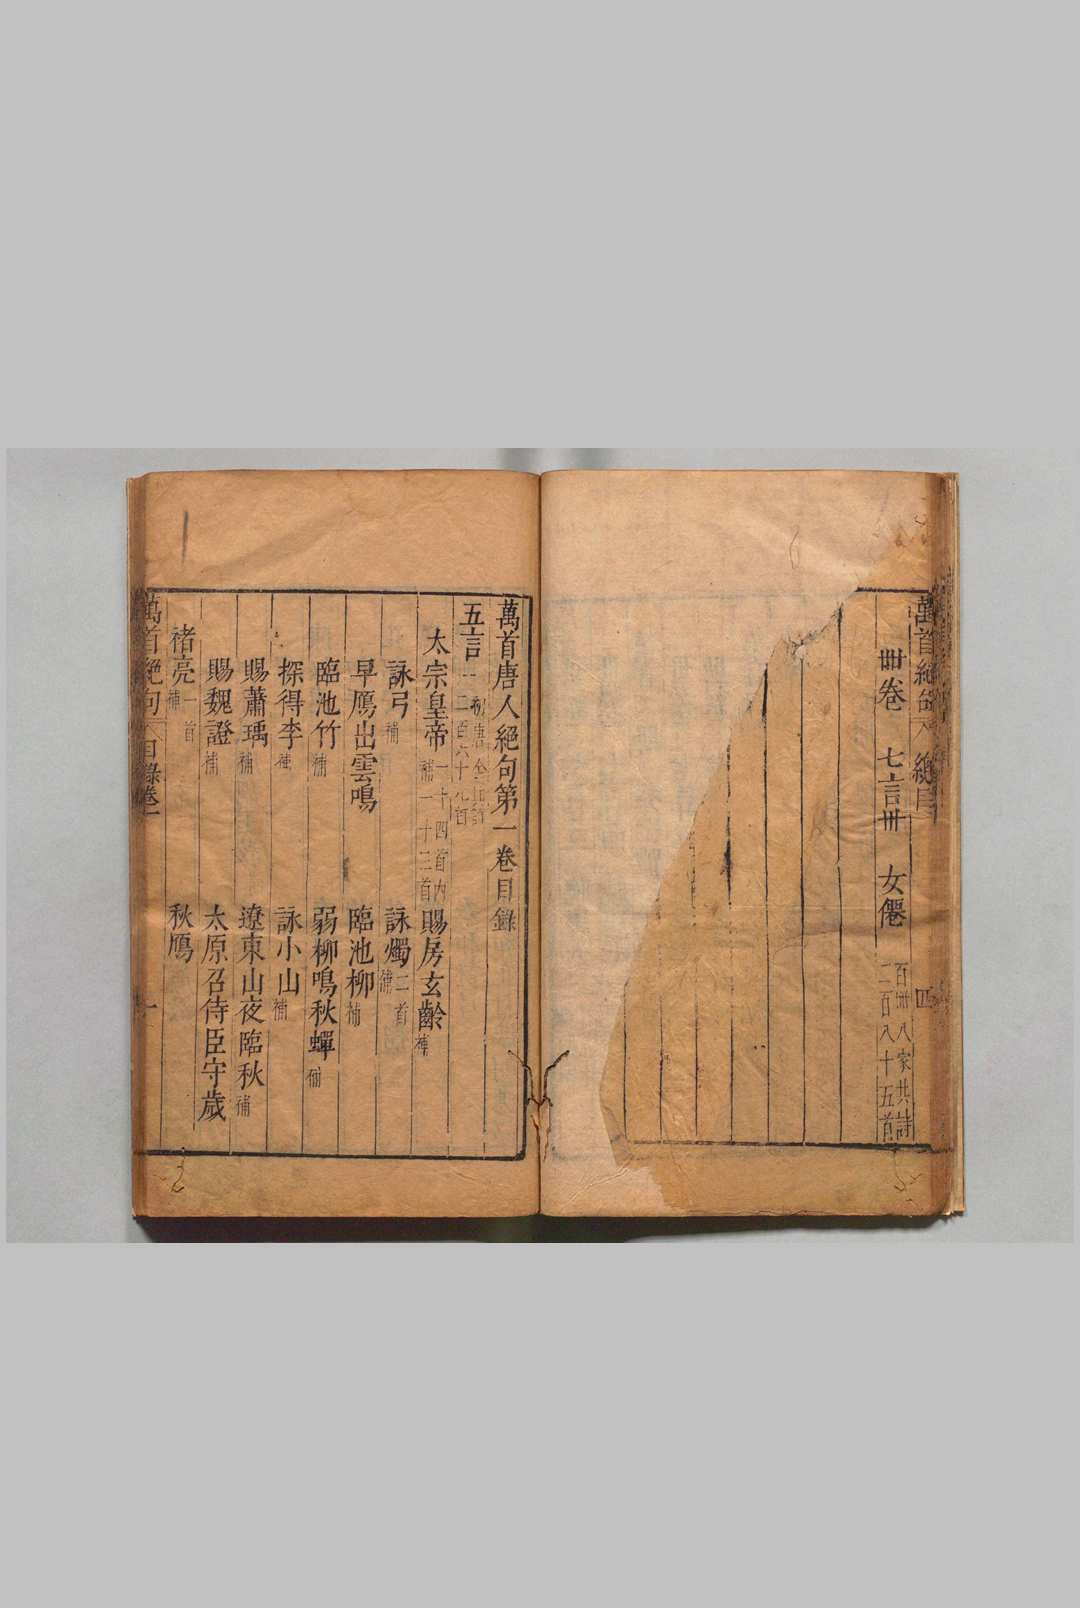 萬首絕句 總目 四
卌卷 七言卌 女僊 百卌八家共詩二百八十五首
萬首唐人絕句第一卷目錄
五言一 初唐 二百六十九首
太宗皇帝 一十四首內補一十三首 賜房玄齡 補
詠弓 補 詠燭二首 補
早鴈出雲鳴 臨池柳 補
臨池竹 補 弱柳鳴秋蟬 補
探得李 補 詠小山 補
賜蕭瑀 補 遼東山夜臨秋 補
賜魏證 補 太原召侍臣守歲
褚亮 一首補 秋鴈
萬首絕句 目錄卷一 一